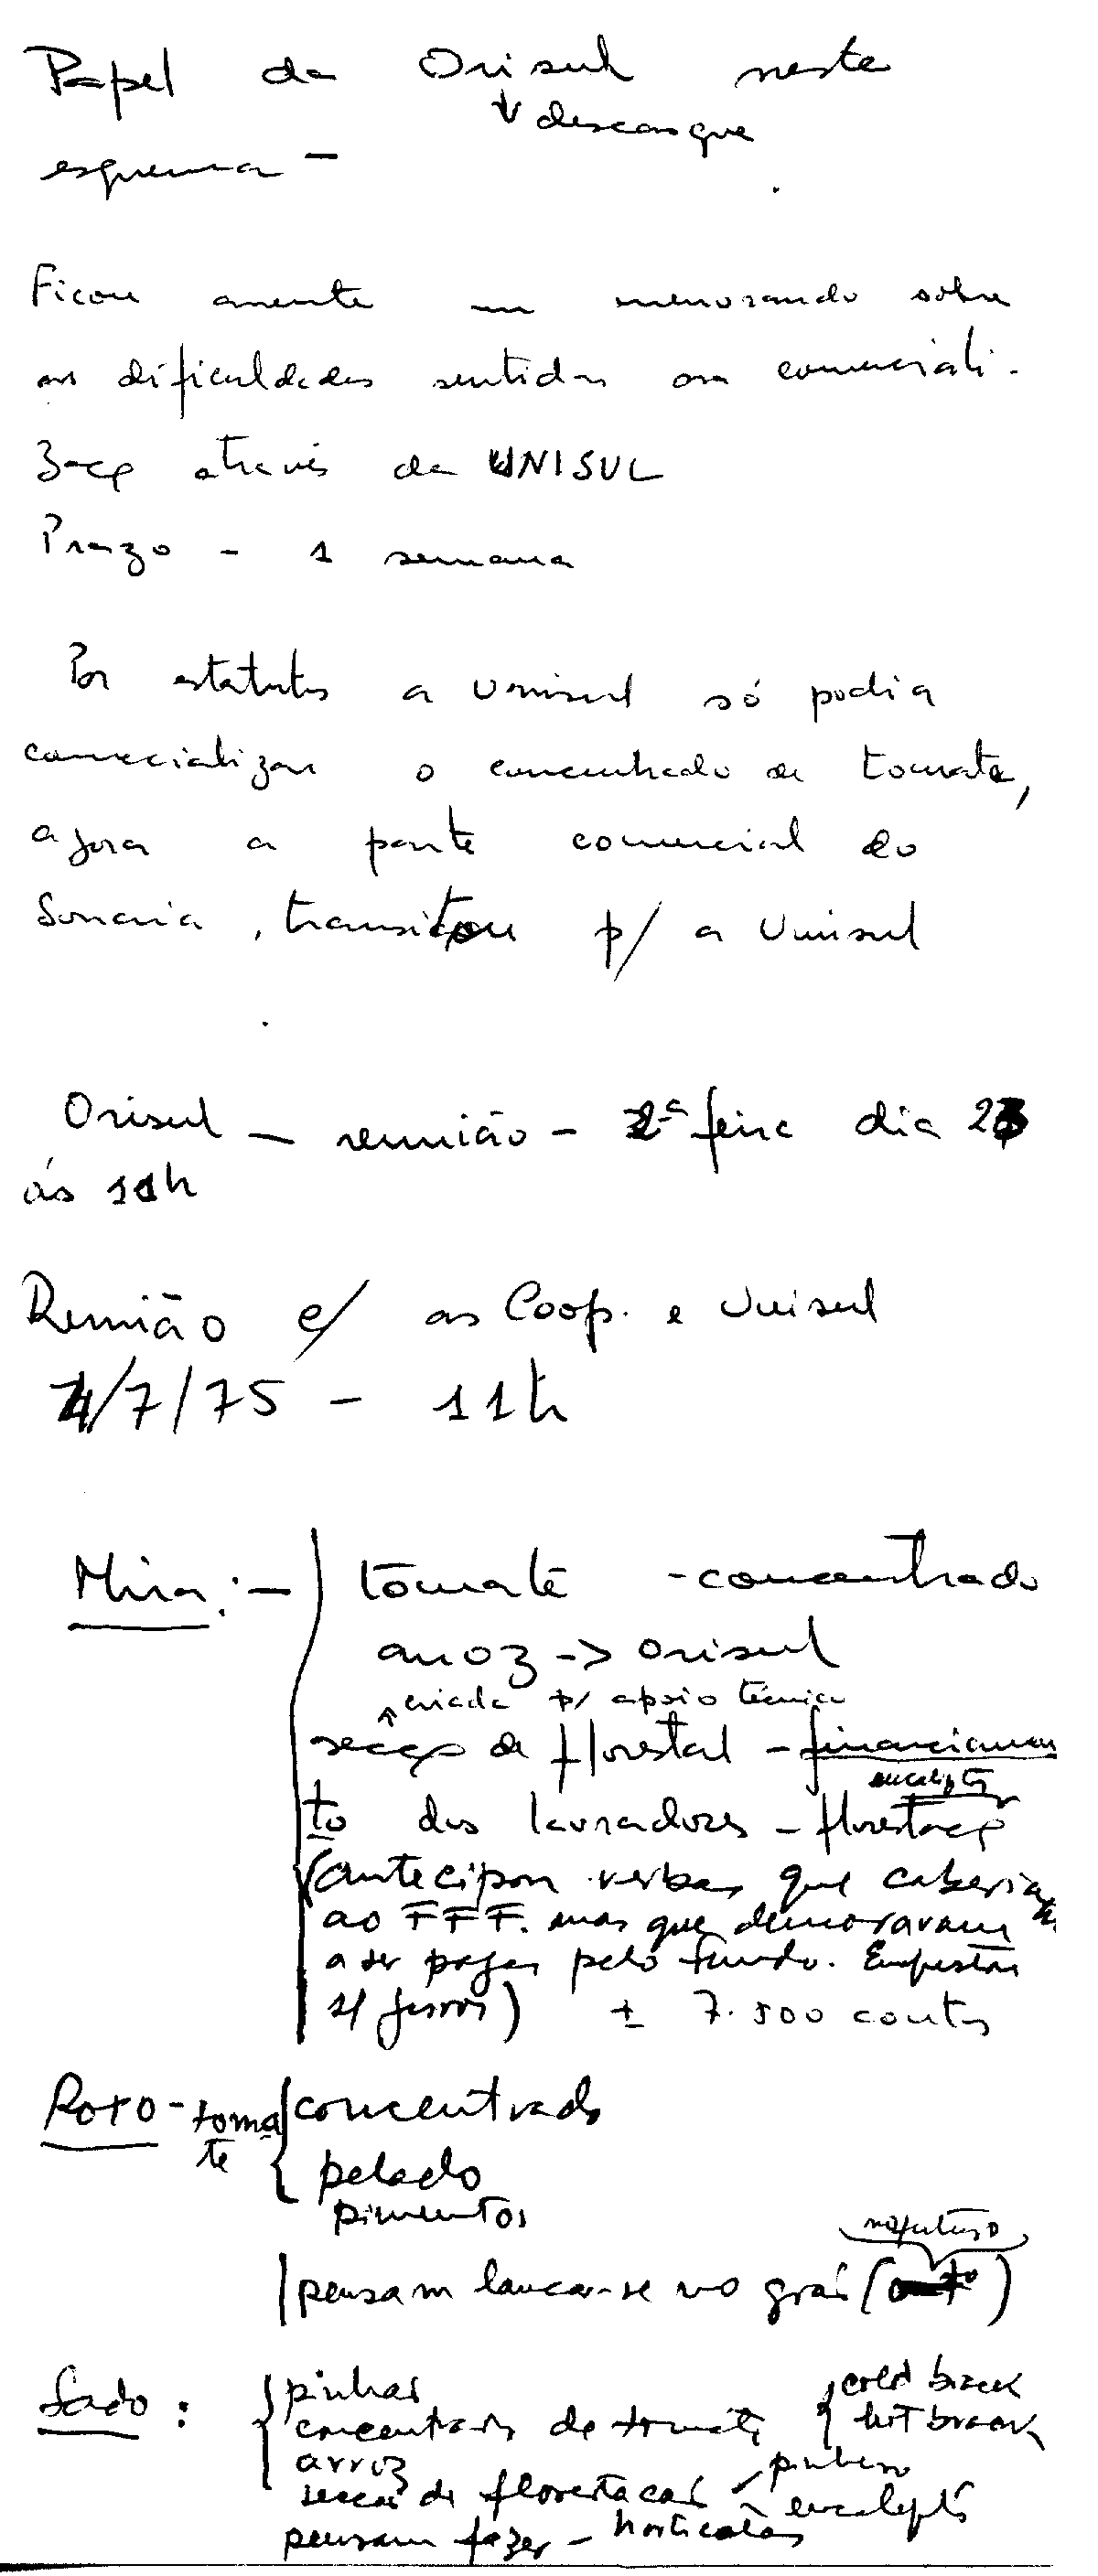 Papel da Orisul neste
↓ descasque
esquema -
Ficou assente um memorando sobre
as dificuldades sentidas na comerciali-
zação através da UNISUL
Prazo - 1 semana
Por estatutos a Unisul só podia
comercializar o concentrado de tomate,
agora a parte comercial do
, transitou p/ a Unisul
Orisul - reunião - 2ª feira dia 23
às 11h
Reunião c/ as Coop. e Unisul
/7/75 - 11h
Mira: - tomate - concentrado
arroz -> orisul
↑ criada p/ apoio técnico
secção de florestal - financiamen
eucalipto
to dos lavradores - florestação
(antecipam verbas que caberiam
ao FFF. mas que demoravam
a ser pagas pelo fundo. Emprestam
s/ juros) ± 7.500 contos
Roxo - toma concentrado
te
pelado
pimentos
no futuro
pensam lançar-se no grão ( )
Sado: pinhas
cold break
concentrado de tomate hot break
arroz
pinheiro
secção de florestação - eucalipto
pensam fazer - horticolas